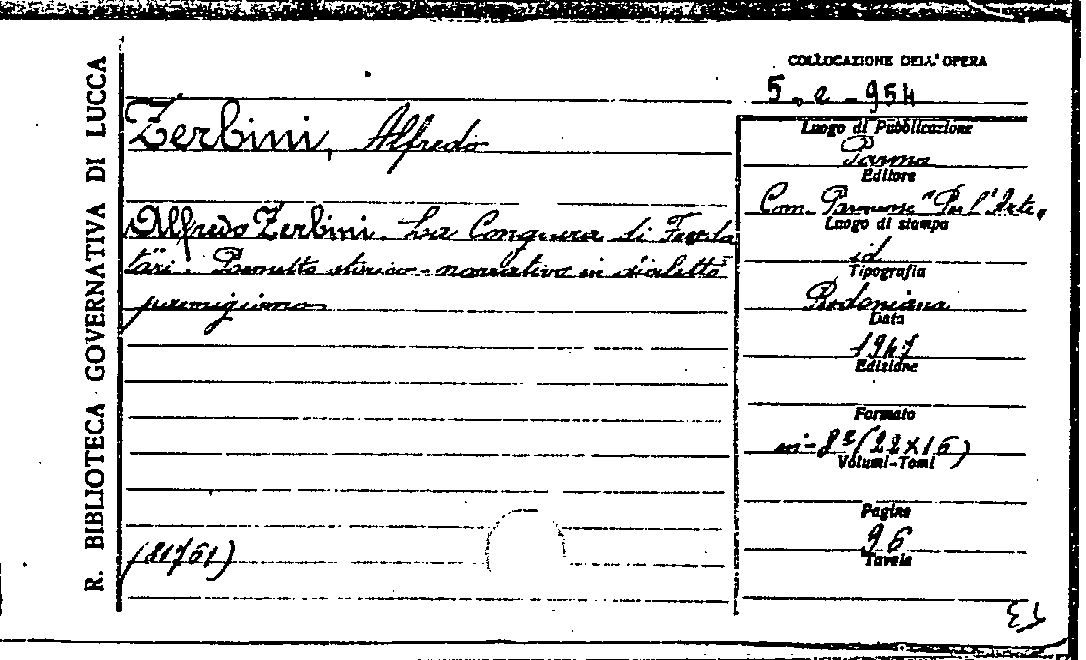 R. BIBLIOTECA GOVERNATIVA DI LUCCA
COLLOCAZIONE DELL'OPERA
5. e - 954
Zerbini, Alfredo
Alfredo Zerbini. La Congiura di Feuda
tari. Poemetto storico-narrativo in dialetto
parmigiano
(81761)
Luogo di Pubblicazione
Parma
Editore
Com. Parmense "Per l'Arte"
Luogo di stampa
id
Tipografia
Bodoniana
Data
1947
Edizione
Formato
in-8º (22x16)
Volumi-Tomi
Pagine
96
Tavole